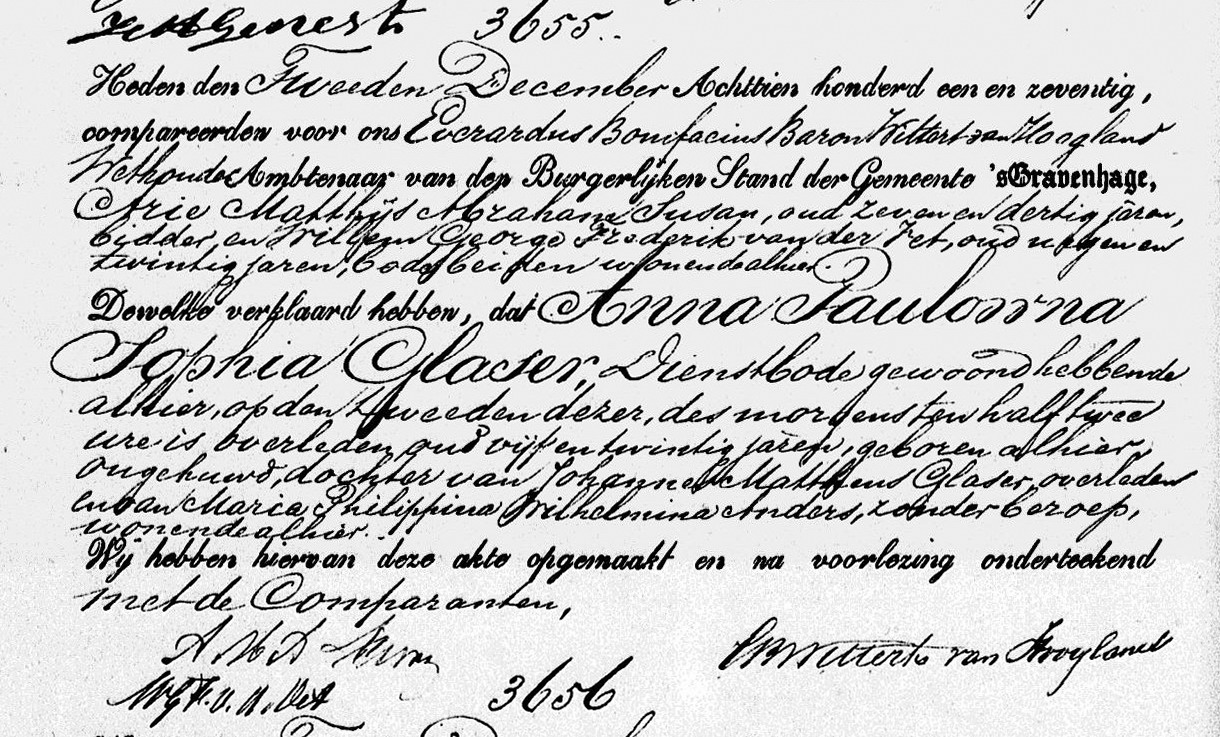 3655.
Heden den Tweeden December Achttien honderd een en zeventig,
compareerden voor ons Everardus Bonifacius Baron Wittert van Hoogland
Wethouder Ambtenaar van den Burgerlijken Stand der Gemeente 'sGravenhage,
Arie Matthijs Abraham Susan, oud zeven en dertig jaren,
bidder, en Willem George Frederik van der Vet, oud negen en
twintig jaren, bode, beiden wonende alhier.
Dewelke verklaard hebben, dat Anna Paulowna
Sophia Glaser, Dienstbode gewoond hebbende
alhier, op den tweeden dezer, des morgens ten half twee
ure is overleden, oud vijf en twintig jaren, geboren alhier,
ongehuwd, dochter van Johannes Mattheus Glaser, overleden
en van Maria Philippina Wilhelmina Anders, zonder beroep,
wonende alhier.
Wij hebben hiervan deze akte opgemaakt en na voorlezing onderteekend
met de Comparanten,
A M A Susan
EBWittert van Hoogland
WGF. v. d. Vet
3656